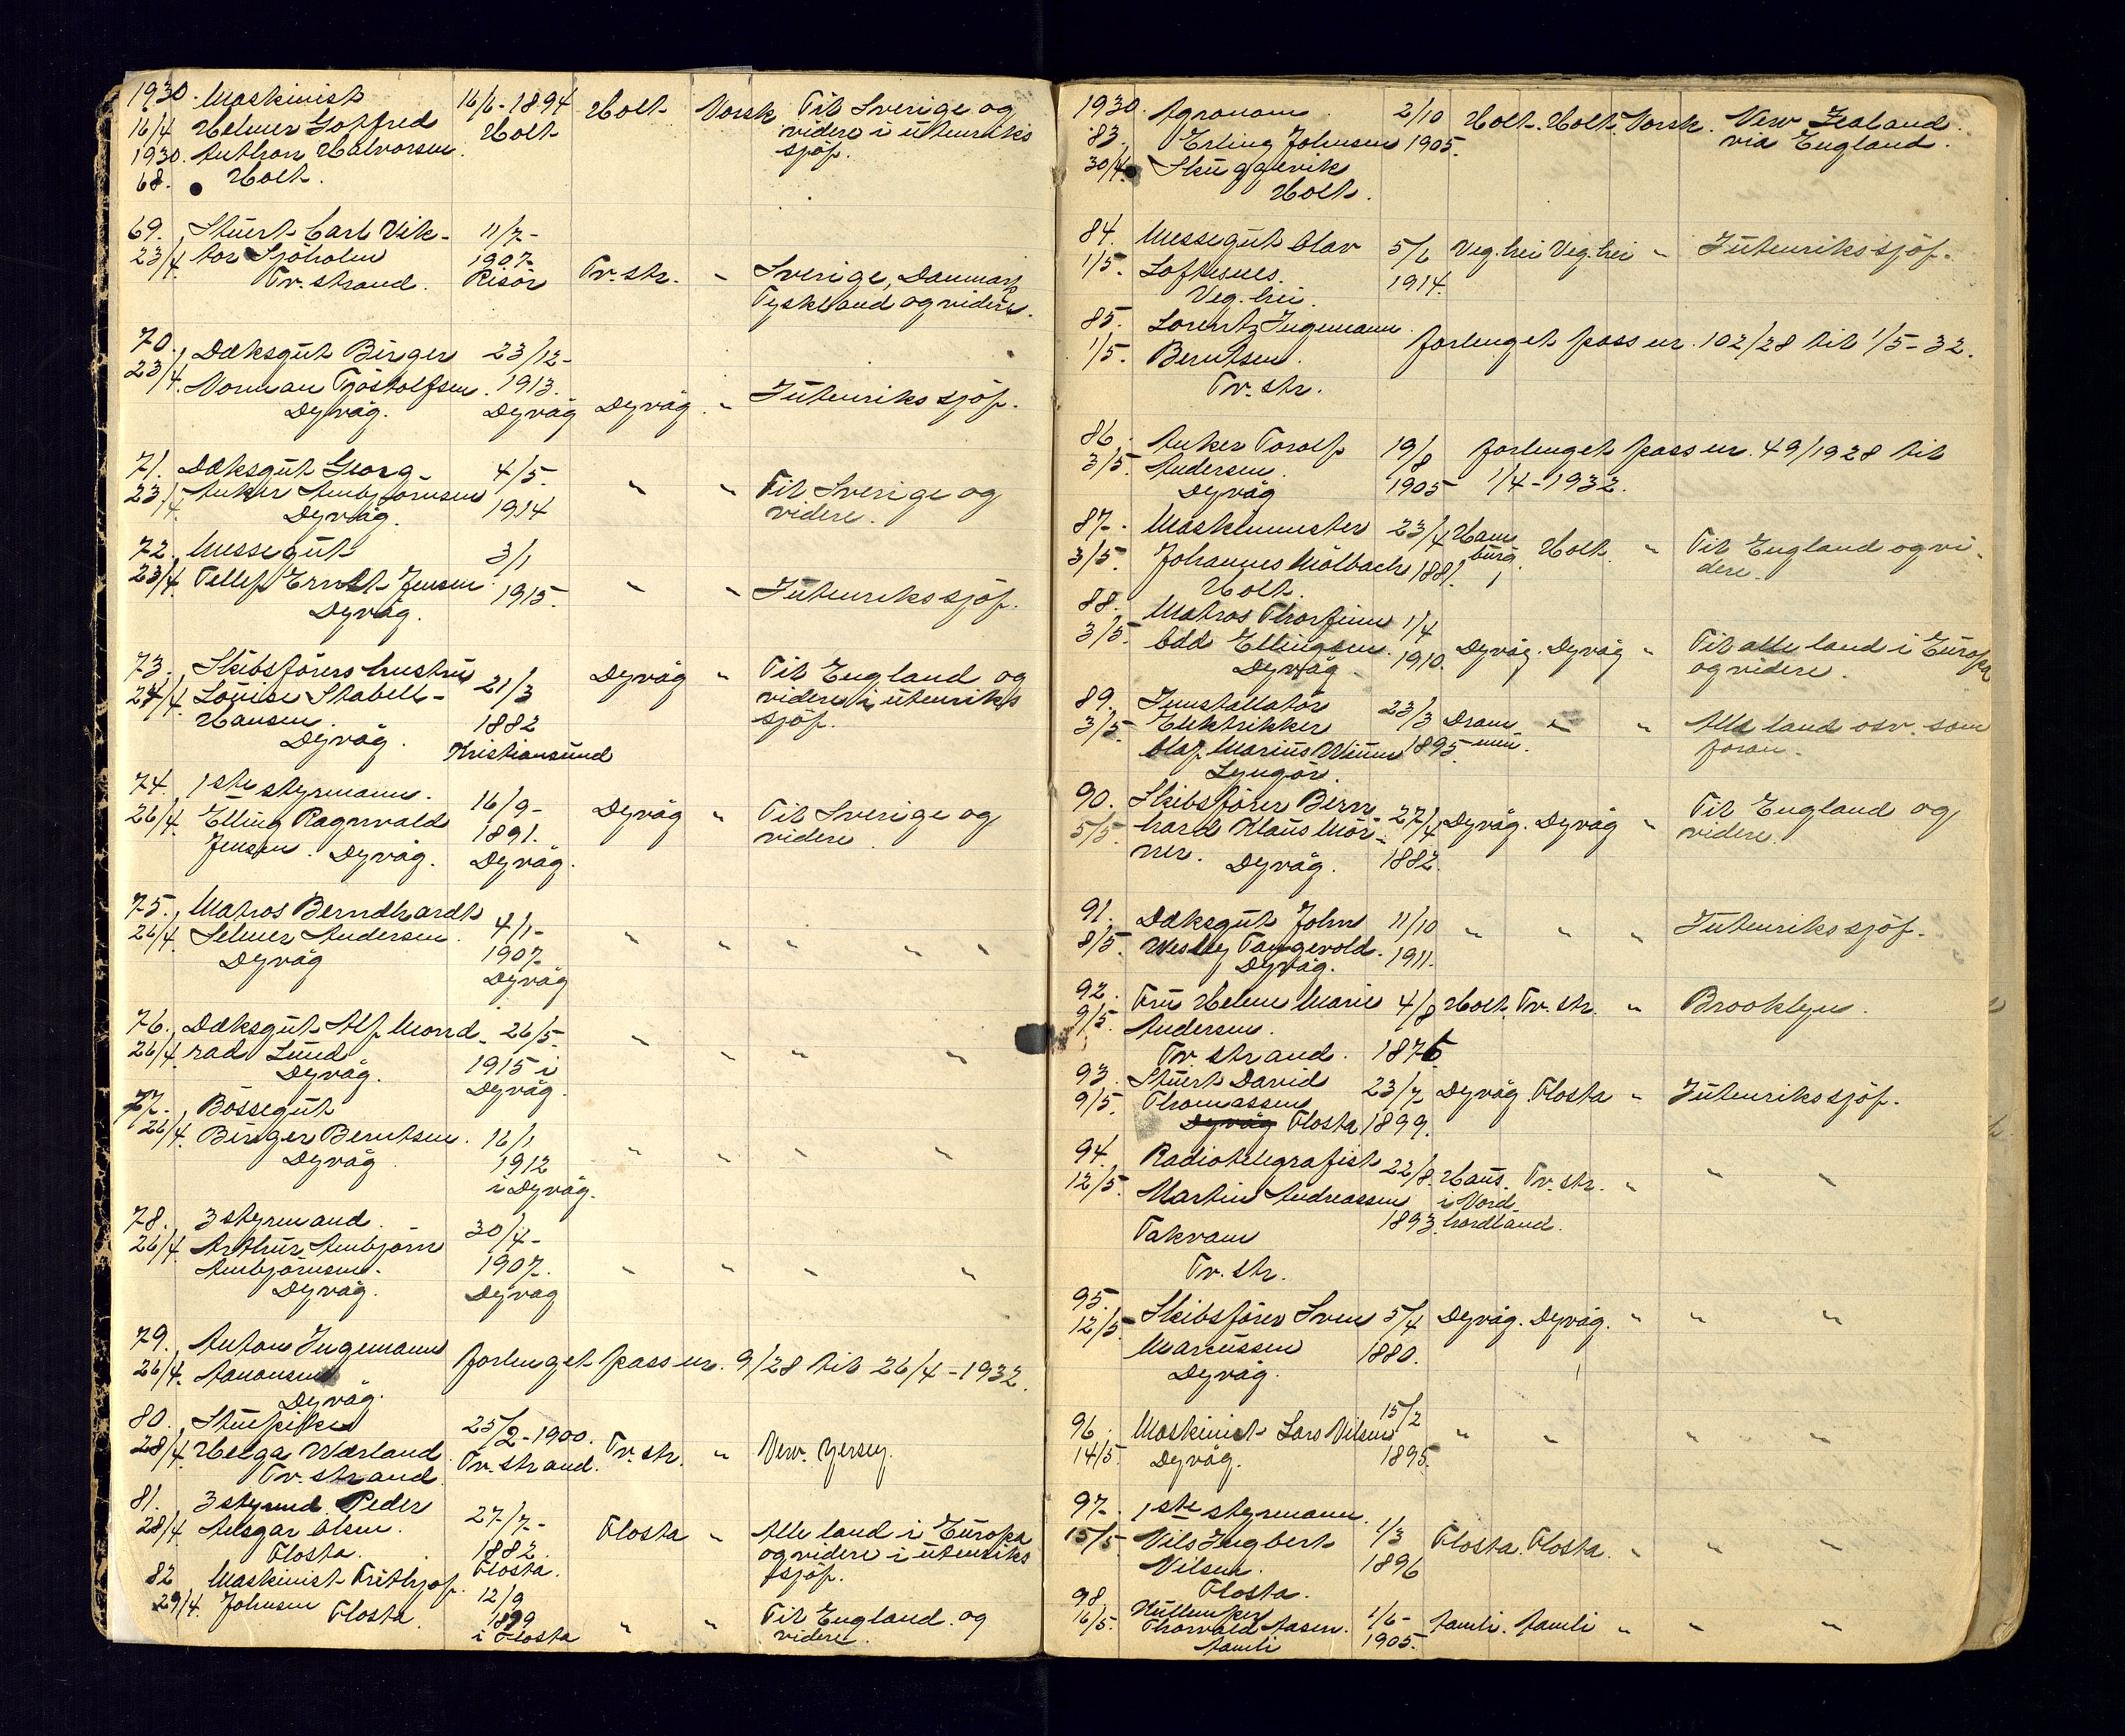 1930. Maskinist 16/6-1894 Holt Norsk Til Sverige og
16/4 Helmer Gotfred Holt videre i utenriks
1930. Anthon Halvorsen sjöf.
68. Holt.
69. Stuert Carl Vik- 11/7-
23/4. tor Sjöholm 1907
Tv.strand. Risör Tv.str. " Sverige, Danmark
Tyskland og videre.
70. Dæksgut Birger 23/12-
23/4. Norman Tjöstolfsen. 1913. Iutenriks sjöf.
Dyvåg. Dyvåg Dyvåg. "
71. Dæksgut Georg 4/5- " " Til Sverige og
23/4. Anker Ambjörnsen 1914 videre.
Dyvåg.
72. Messegut 3/1
23/4. Tellef Ernst Jensen 1915. " " Iutenrikssjöf.
Dyvåg.
73. Skibsförers hustru 21/3 Dyvåg " Til England og
24/4. Louise Stabell- 1882 videre i utenriks
Hansen. sjöf.
Dyvåg. Kristiansund
74. 1ste styrmann. 16/9- Dyvåg " Til Sverige og
26/4. Elling Ragnvald 1891. videre.
Jensen. Dyvåg. Dyvåg.
75. Matros Berndhardt 4/1-
26/4. Selmer Andersen. 1907 " " " " "
Dyvåg Dyvåg
76. Dæksgut Alf Mond- 26/5- " " " "
26/4. rad Lund 1915 i
Dyvåg. Dyvåg.
77. Bössegut
26/4. Birger Berntsen. 16/1 " " " "
Dyvåg. 1912
i Dyvåg.
78. 3 styrmand. 30/4-
26/4. Arthur Ambjörn 1907. " " " "
Ambjörnsen. Dyvåg
Dyvåg.
79. Anton Ingemann
26/4. Aanonsen forlenget pass nr. 9/28 til 26/4-1932.
Dyvåg.
80. 25/2-1900.
28/4. Helga Værland Tv.strand. Tv.str. " New. Yersey.
Tv.strand
81. 3 styrmd. Peder 27/7-
28/4 Ansgar Olsen. 1882. Flosta " Alle land i Europa
Flosta. Flosta. og videre i utenriks
sjöf.
82 Maskinist Frithjof. 12/9
29/4. Johnsen Flosta. 1899 " " Til England og
i Flosta videre.
1930. Agronom 2/10 Holt. Holt. Norsk. New Zealand.
83. Erling Johnsen 1905. via England.
30/4. Skuggevik
Holt.
84. Messegut Olav 5/6 Veg.hei Veg.hei " Iutenrikssjöf.
1/5. Loftesnes. 1914.
Veg.hei.
85. Lorentz Ingemann forlenget pass nr. 102/28 til 1/5-32.
1/5. Berntsen.
Tv.str.
86. Anker Torolf 19/8 forlenget pass nr. 49/1928 til
3/5. Andersen. 1905 1/4-1932.
Dyvåg
87. Maskinmester 23/4 Ham Holt. " Til England og vi-
3/5. Johannes Mölbach 1881. burg. dere.
Holt.
88. Matros Thorfinn 1/4
3/5. Odd Ellingsen. 1910. Dyvåg. Dyvåg " Til alle land i Europa
Dyvåg og videre.
89. Innstallatör 23/3 Dram " " Alle land osv. som
3/5. Elektrikker 1895 men. foran.
Olaf Marius Winn
Lyngör.
90. Skibsförer Bern 27/4 Dyvåg. Dyvåg " Til England og
5/5. hard Klaus Mör- 1882. videre.
ner. Dyvåg.
91. Dæksgut John 11/10 " " " Iutenrikssjöf.
8/5. Wesley Tangevold. 1911.
Dyvåg.
92. Fru Helene Marie 4/8 Holt. Tv.str. " Brooklyn.
9/5. Andersen.
Tv.strand. 1876
93. Stuert David 23/7 Dyvåg. Flosta " Iutenrikssjöf.
9/5. Thomassen
Dyvåg Flosta 1899.
94. Radiotelegrafist 22/8. Haus. Tv.str. " " "
12/5. Martin Andreassen i Nord-
1893. hordland.
Takvam
Tv.str.
95. Skibsförer Sven 5/4 Dyvåg. Dyvåg. " " "
12/5 Marcussen 1880.
Dyvåg.
96. Maskinist Lars Nilsen 15/2 " " " " "
14/5. Dyvåg. 1895.
97. 1ste styrmann.
15/5. Nils Ingbert 1/3 Flosta. Flosta. " " "
Nilsen. 1896
Flosta.
98 Kullemper
16/5. Thorvald Aasen. 1/6- Aamli. Aamli " " "
Aamli 1905.